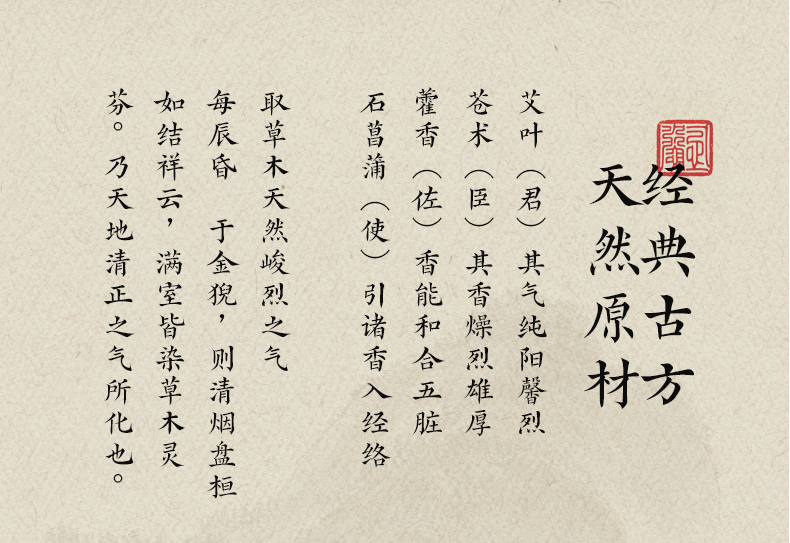 经典古方
天然原材
艾叶（君）其气纯阳馨烈
苍术（臣）其香燥烈雄厚
藿香（佐）香能和合五脏
石菖蒲（使）引诸香入经络
取草木天然峻烈之气
每辰昏 于金猊，则清烟盘桓
如结祥云，满室皆染草木灵
芬。乃天地清正之气所化也。